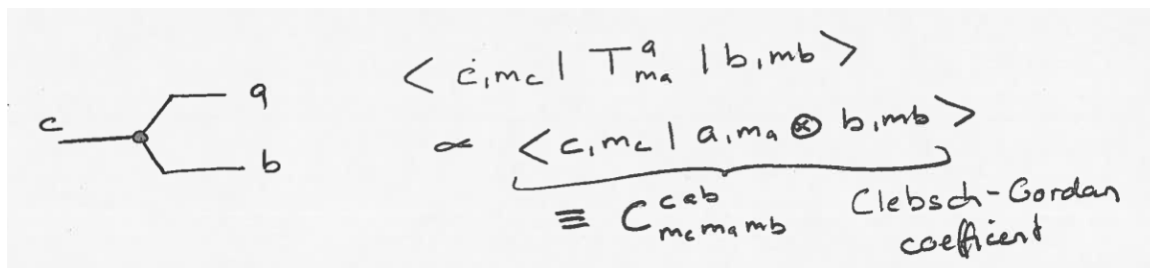 < c,mc | T^a_ma | b,mb >
c
a
b
∝ < c,mc | a,ma ⊗ b,mb >
≡ C^{cab}_{mcmamb} Clebsch-Gordan
coefficient